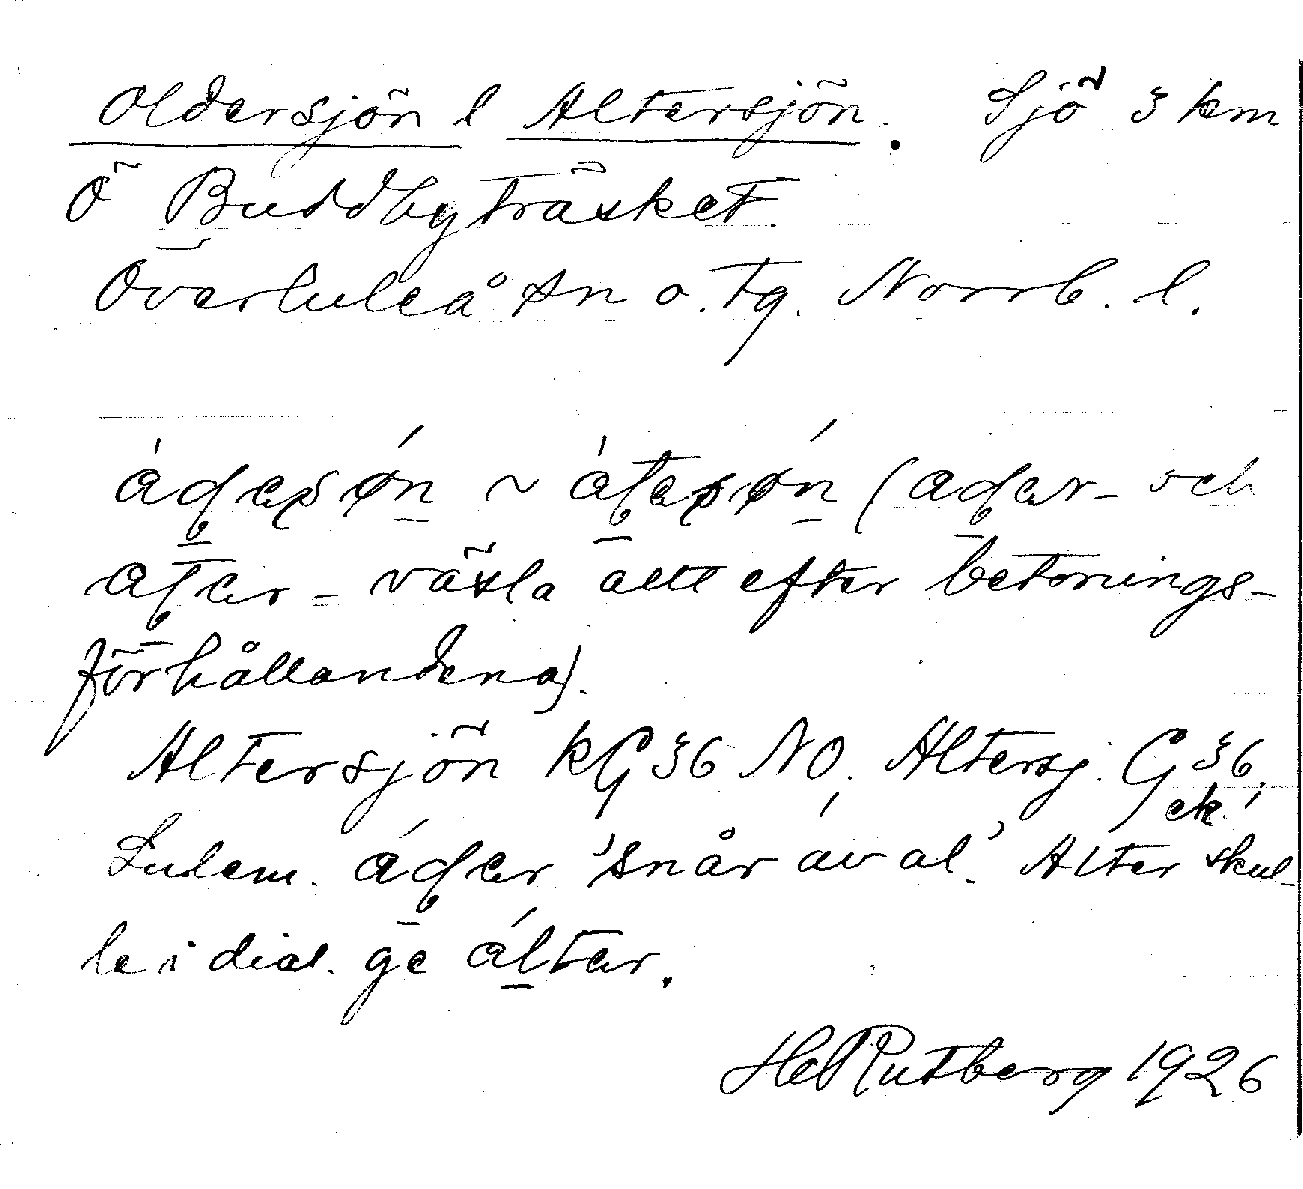 Oldersjön l Altersjön. Sjö 3 km
Ö Buddbyträsket.
Överluleå sn o. tg. Norrb. l.
växla allt efter betonings-
förhållandena).
Altersjön kG 36 NO. Altersj. G 36 ek.
Lulem. 'snår av al.' Alter skul-
le i dial. ge áltar.
HRutberg 1926